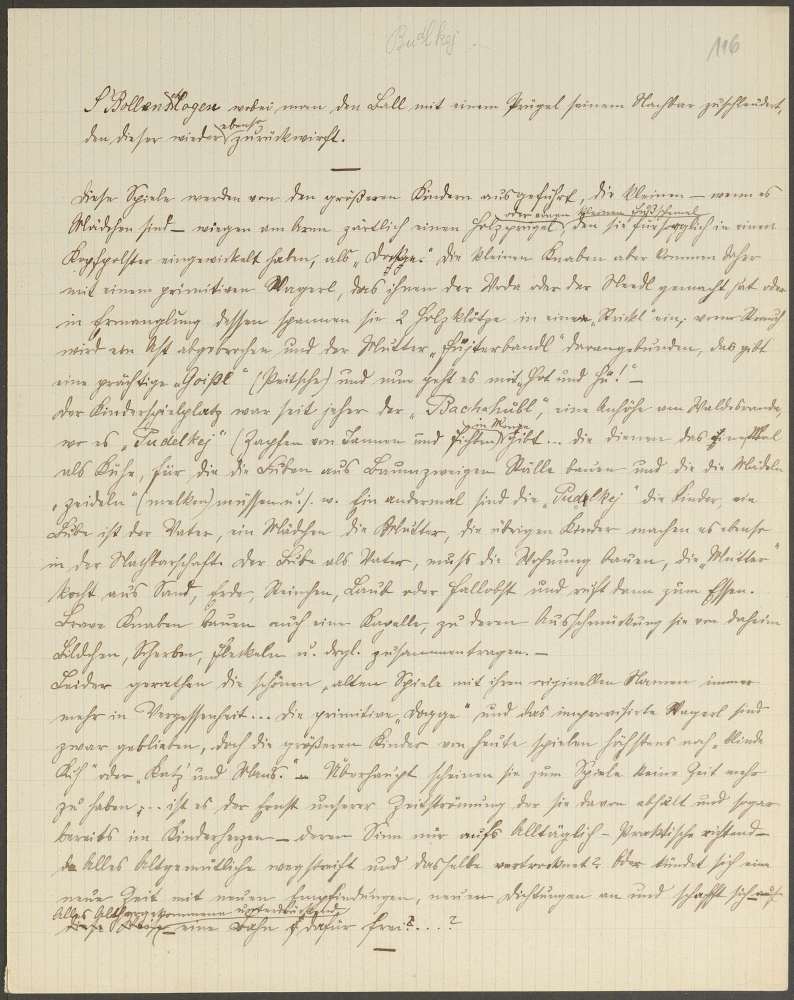 Budlkej
116
S' Bollenschlogen wobei man den Ball mit einem Prügel seinem Nachbar zuschleudert,
ebenso
den, dieser wieder zurückwirft.
Diese Spiele werden von den größeren Kindern ausgeführt, die Kleinen – wenn es
oder einen kleinen Fußschemel
Mädchen sind – wiegen am Arm zärtlich einen Holzprügel den sie fürsorglich in einen
Kopfpolster eingewickelt haben, als „Dogge." Die kleinen Knaben aber kommen daher
mit einem primitiven Wagerl, das ihnen der Voda oder der Neendl gemacht hat oder
in Ermanglung dessen spannen sie 2 Holzklötze in einen „Strickl" ein, vom Strauch
wird ein Ast abgebrochen und der Mutter „Füsterbandl" darangebunden, das gibt
eine prächtige „Goißl" (Peitsche) und nun geht es mit „Hot und Hü!" –
Der Kinderspielplatz war seit jeher der „Bachahübl", eine Anhöhe am Waldesrande,
in Menge
wo es „Pudelkej" (Zapfen von Tannen und Fichten) gibt ... die dienen das eine Mal
als Kühe, für die die Buben aus Baumzweigen Ställe bauen und die die Mädeln
„zeideln" (melken) müssen u. s. w. Ein andermal sind die „Pudelkej" die Kinder, ein
Bube ist der Vater, ein Mädchen die Mutter, die übrigen Kinder machen es ebenso
in der Nachbarschaft. Der Bube als Vater, muß die Wohnung bauen, die „Mutter"
kocht aus Sand, Erde, Steinchen, Laub oder Fallobst und ruft dann zum Essen.
Brave Knaben bauen auch eine Kapelle, zu deren Ausschmückung sie von daheim
Bildchen, Scherben, Fleckeln u. drgl. zusammentragen. –
Leider gerathen die schönen, alten Spiele mit ihren originellen Namen immer
mehr in Vergessenheit ... die primitive „Dogge" und das improvisirte Wagerl sind
zwar geblieben, doch die größeren Kinder von heute spielen höchstens noch „blinde
Kih" oder „Katz und Maus." – Überhaupt scheinen sie zum Spiele keine Zeit mehr
zu haben, ... ist es der Ernst unserer Zeitströmung der sie davon abhält und sogar
bereits im Kinderherzen – deren Sinn nur aufs Alltäglich-Praktische richtend –
Alles Altgemütliche wegstreift und dasselbe vertrocknet? Oder kündet sich eine
neue Zeit mit neuen Empfindungen, neuen Dichtungen an und schafft sich
Alles Althergekommene unterdrückend,
eine Bahn dafür frei? ... ?